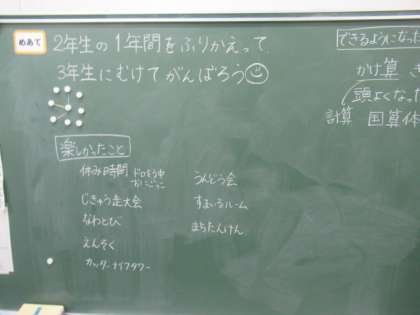 めあて
2年生の1年間をふりかえって、
3年生にむけてがんばろう
楽しかったこと
休み時間 ドロぼう中 おにごっこ
じきゅう走大会
なわとび
えんそく
カッターナイフタワー
うんどう会
すまいるルーム
まちたんけん
できるようになった
かけ算
頭よくなった
計算 国算体